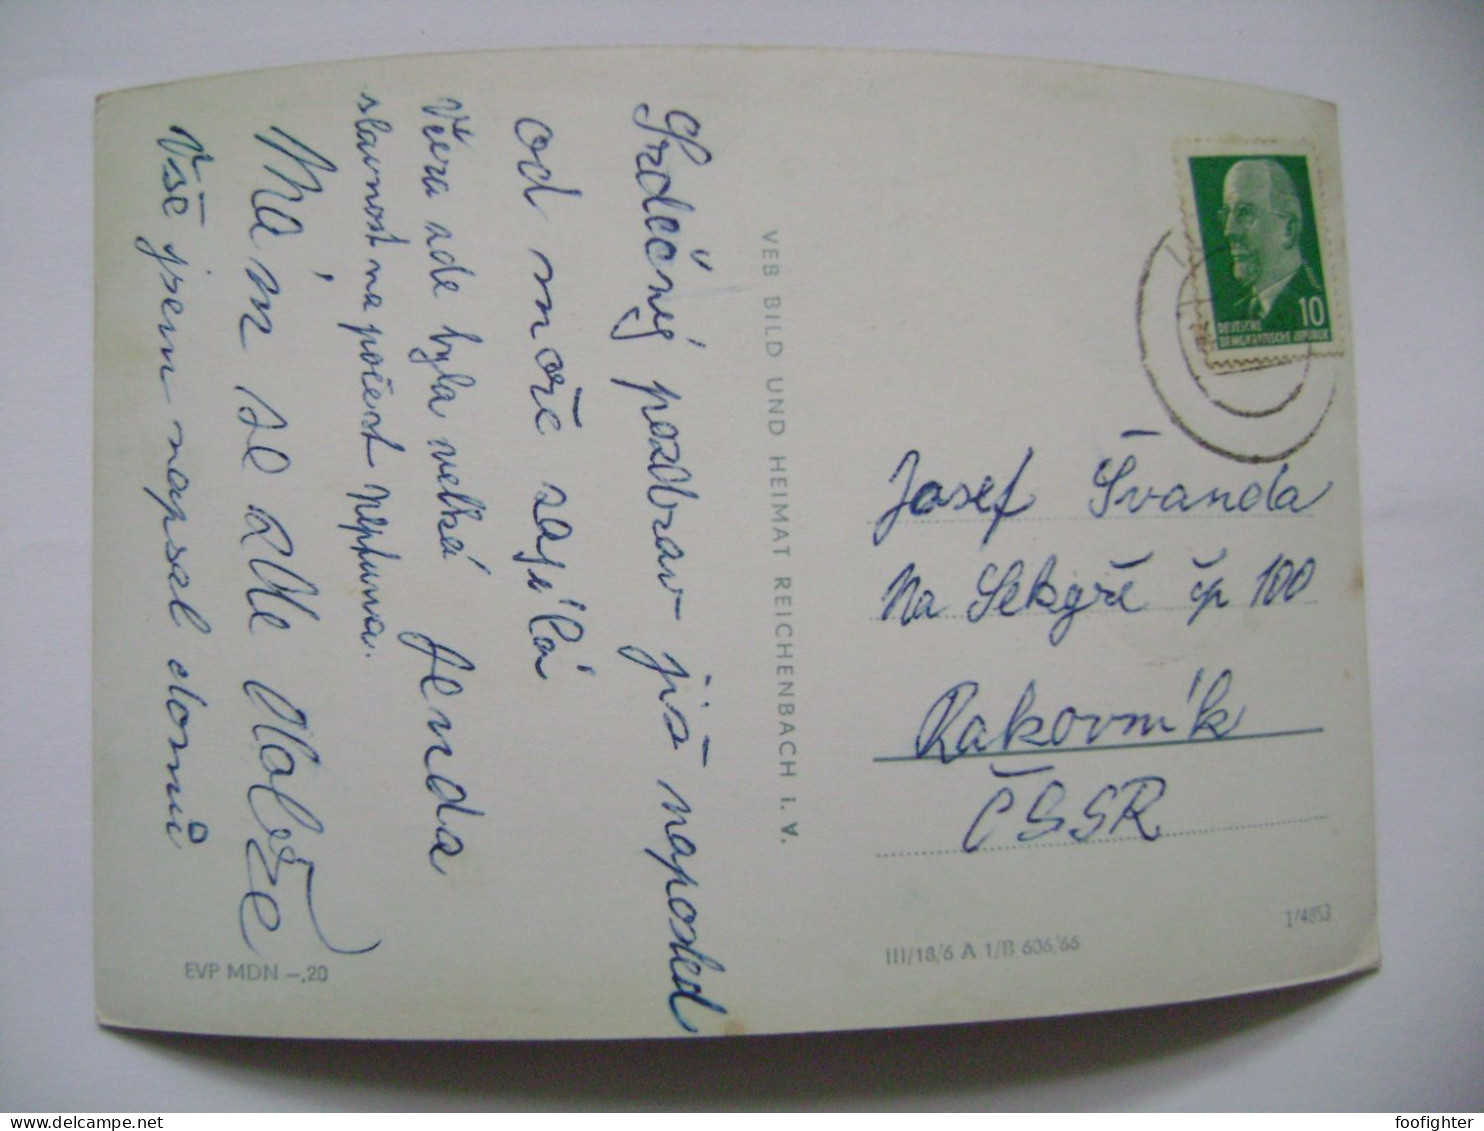 Srdečný pozdrav již naposled
od moře zasílá
Jenda
Včera zde byla velká
slavnost na počest Neptuna.
Mám se zde dobře
Vše jsem napsal domů
VEB BILD UND HEIMAT REICHENBACH I. V.
10
DEUTSCHE
DEMOKRATISCHE REPUBLIK
Josef Švanda
Na Sekyře čp 100
Rakovník
ČSSR
EVP MDN –,20
III/18/6 A 1/B 606/66
1/4853
foofighter